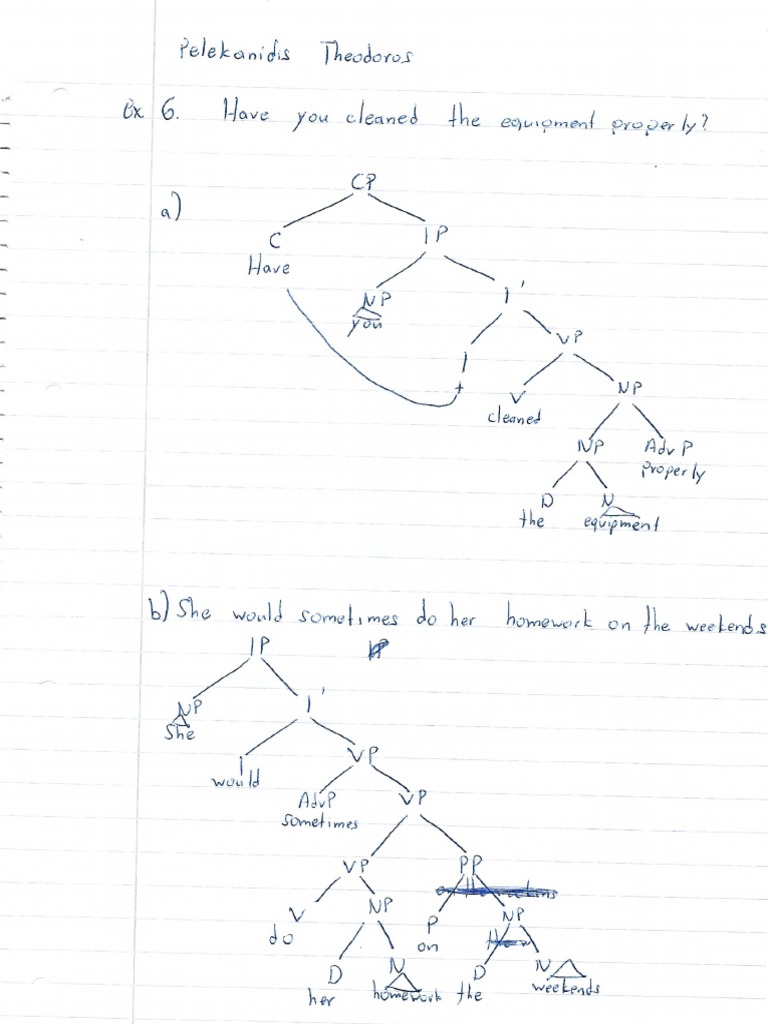 Pelekanidis Theodoros
Ex 6. Have you cleaned the equipment properly?
a)
CP
C IP
Have
NP I'
you
I VP
t V NP
cleaned
NP AdvP
properly
D N
the equipment
b) She would sometimes do her homework on the weekends
IP
NP I'
She
I VP
would
AdvP VP
sometimes
VP PP
V NP P NP
do on
D N D N
her homework the weekends